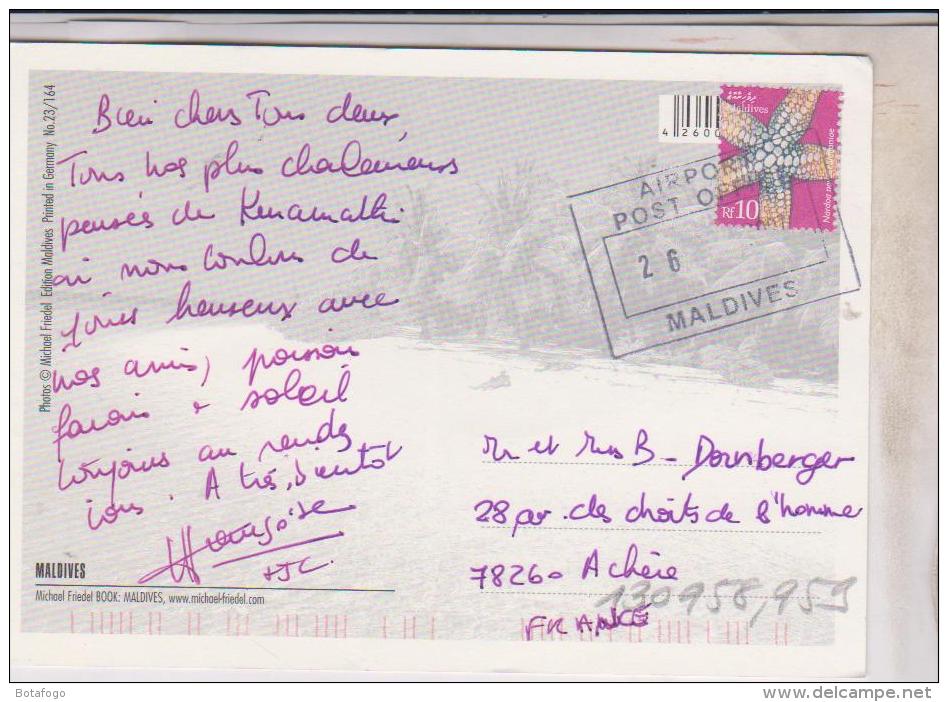 Photos © Michael Friedel Edition Maldives Printed in Germany No.23/164
Bien chers Tous deux,
Tous nos plus chaleureux
pensés de Kuramathi
où nous coulons de
jours heureux avec
nos amis, poisson
farois & soleil
toujours au rendez
vous. A très bientôt
Françoise
+JC.
MALDIVES
Michael Friedel BOOK: MALDIVES, www.michael-friedel.com
4 2600
Maldives
Rf 10
AIRPORT
POST OFFICE
2 6
MALDIVES
Mr et Mrs B_ Dornberger
28 av. des droits de l'homme
78260 Achère
FRANCE
130958,959
Botafogo
www.delcampe.net